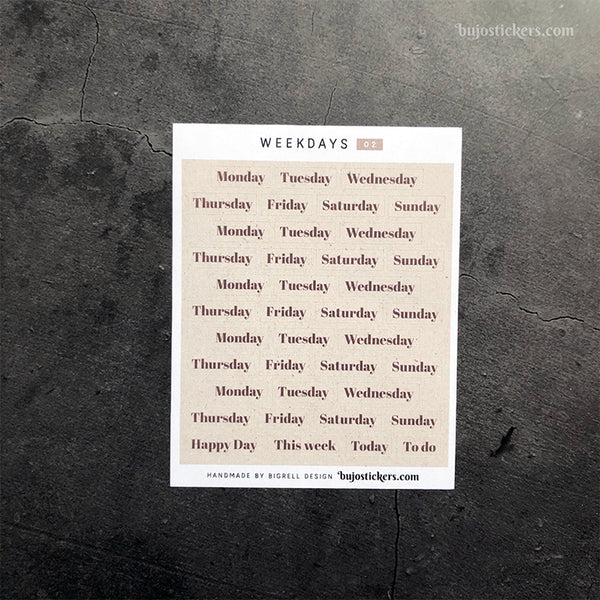 bujostickers.com
WEEKDAYS 02
Monday Tuesday Wednesday
Thursday Friday Saturday Sunday
Monday Tuesday Wednesday
Thursday Friday Saturday Sunday
Monday Tuesday Wednesday
Thursday Friday Saturday Sunday
Monday Tuesday Wednesday
Thursday Friday Saturday Sunday
Monday Tuesday Wednesday
Thursday Friday Saturday Sunday
Happy Day This week Today To do
HANDMADE BY BIGRELL DESIGN bujostickers.com